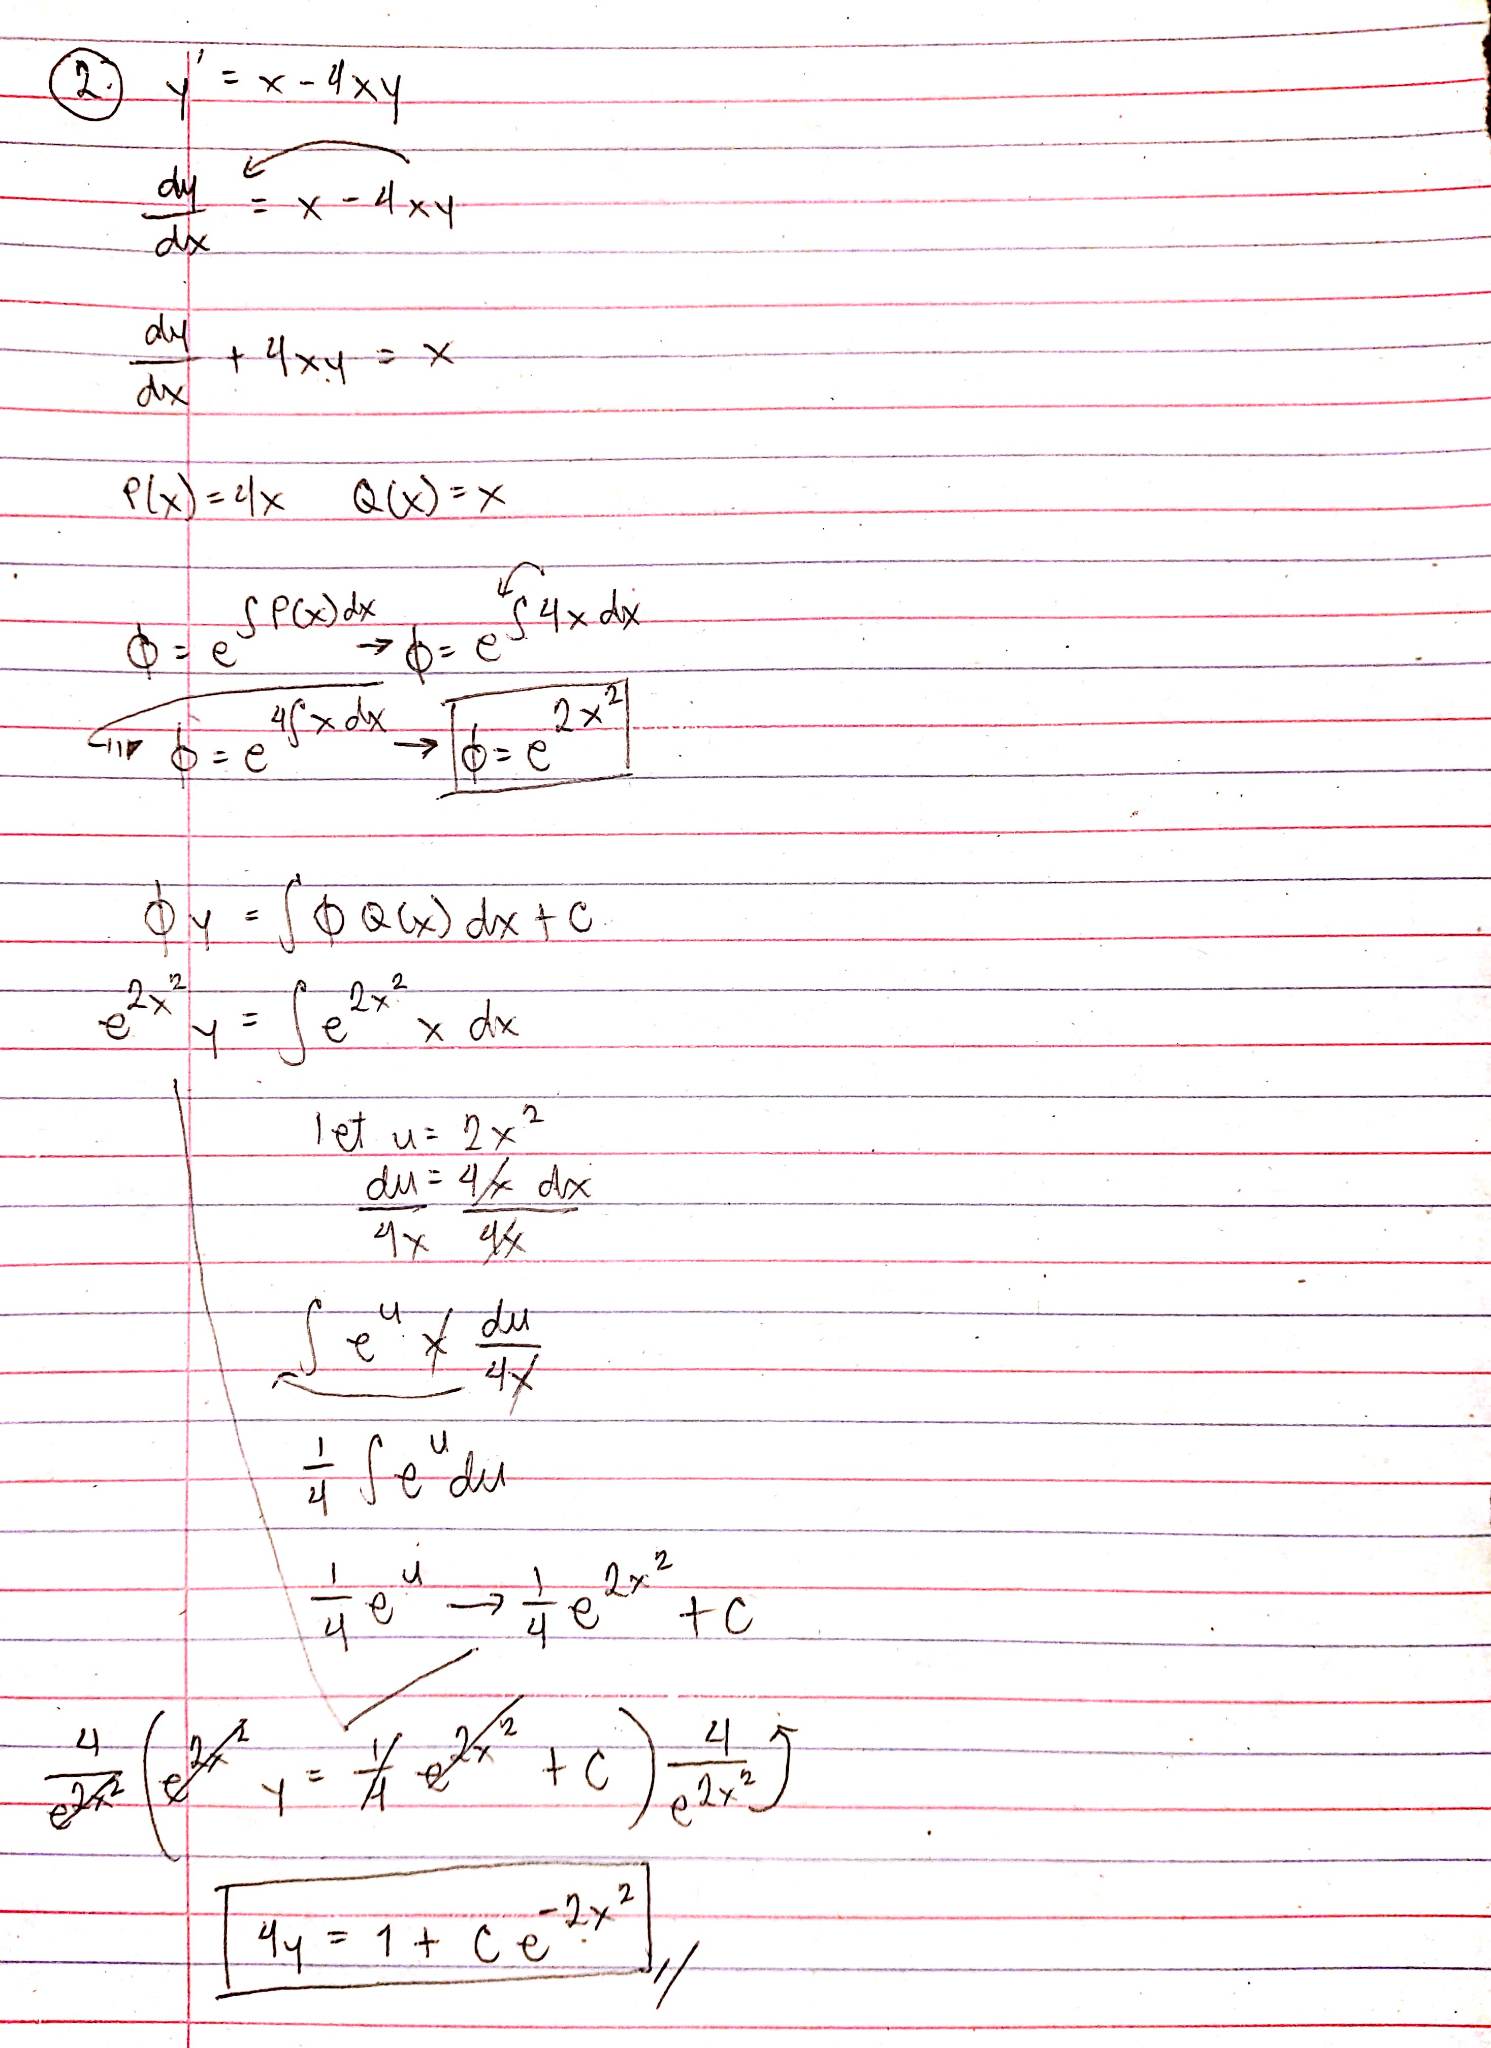 2. y' = x - 4xy
dy/dx = x - 4xy
dy/dx + 4xy = x
P(x) = 4x Q(x) = x
ϕ = e^∫P(x)dx → ϕ = e^∫4x dx
ϕ = e^4∫x dx → ϕ = e^2x²
ϕy = ∫ϕ Q(x) dx + C
e^2x² y = ∫e^2x² x dx
let u = 2x²
du/4x = 4x dx/4x
∫e^u x du/4x
1/4 ∫e^u du
1/4 e^u → 1/4 e^2x² + C
4/e^2x² (e^2x² y = 1/4 e^2x² + C) 4/e^2x²
4y = 1 + Ce^-2x² //